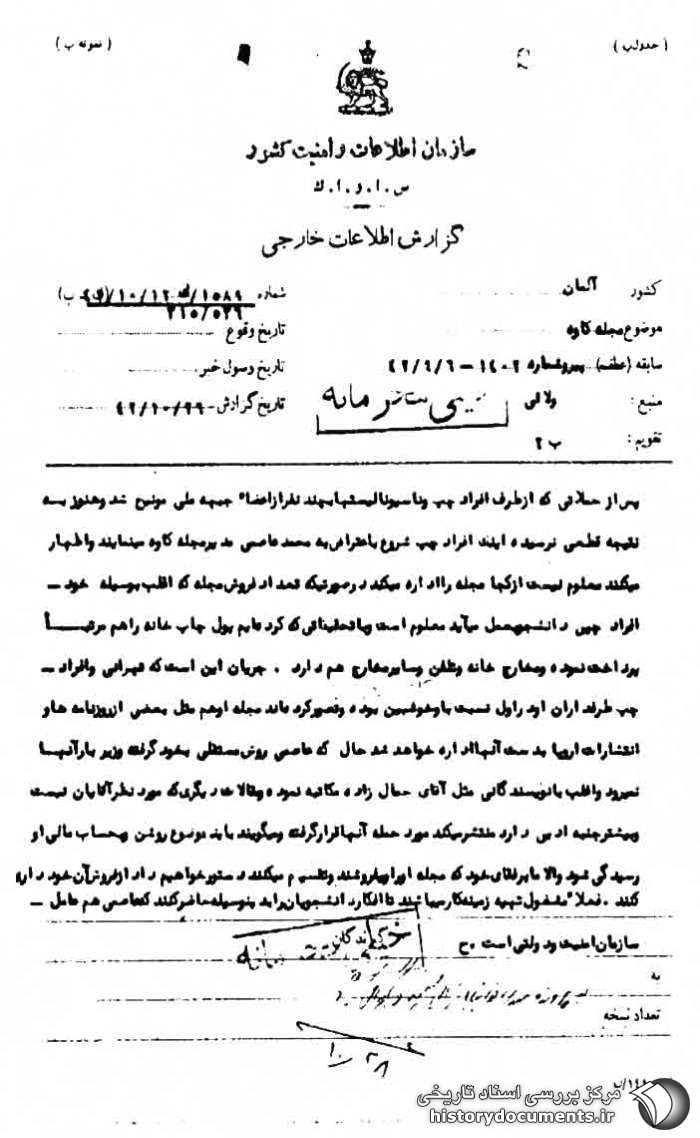 ( جدول ب )
( نمونه ب )
سازمان اطلاعات و امنیت کشور
س . ا . و . ا . ك
گزارش اطلاعات خارجی
کشور آلمان
شماره ۱۵۸۹/
موضوع مجله کاوه
۳۱۵/۵۲۶
تاریخ وقوع
سابقه (عطف) پیرو شماره ۱۴۰۲ - ۴۲/۹/۶
تاریخ وصول خبر
منبع : ولائی
خیلی محرمانه
تاریخ گزارش ۴۲/۱۰/۲۹
تقویم : ب ۲
پس از حملاتی که از طرف افراد چپ وناسیونالیستها بچند نفر از اعضاء جبهه ملی مونیخ شد وهنوز به
نتیجه قطعی نرسیده اینك افراد چپ شروع باعتراض به محمد عاصمی مدیر مجله کاوه مینمایند واظهار
میکنند معلوم نیست از کجا مجله را اداره میکند در صورتیکه تعداد فروش مجله که اغلب بوسیله خود -
افراد چپی دانشجو بعمل میآید معلوم است وباتحقیقاتی که کرده ایم پول چاپ خانه را هم مرتباً
پرداخت نموده ومخارج خانه وتلفن وسایر مخارج هم دارد . جریان این است که تهرانی وافراد -
چپ طرفداران او در اول نسبت باو خوشبین بوده وتصور کرده اند مجله او هم مثل بعضی از روزنامه ها و
انتشارات اروپا بدست آنها اداره خواهد شد حال که عاصمی روش مستقلی بخود گرفته وزیر بار آنها
نمیرود واغلب بانویسندگانی مثل آقای جمال زاده مکاتبه نموده ومقالات دیگری که مورد نظر آقایان نیست
وبیشتر جنبه ادبی دارد منتشر میکند مورد حمله آنها قرار گرفته ومیگویند باید موضوع روشن وبحساب مالی او
رسیدگی شود والا ما برفقای خود که مجله او را میفروشند وتقسیم میکنند دستور خواهیم داد از فروش آن خود داری
کنند . فعلاً مشغول تهیه زمینه کار میباشند تا افکار دانشجویان را بدینوسیله حاضر کنند که عاصمی هم عامل -
سازمان امنیت ودولتی است . ح
گیرندگان
خیلی محرمانه
به
تعداد نسخه
۱۰/۲۸
مرکز بررسی اسناد تاریخی
historydocuments.ir